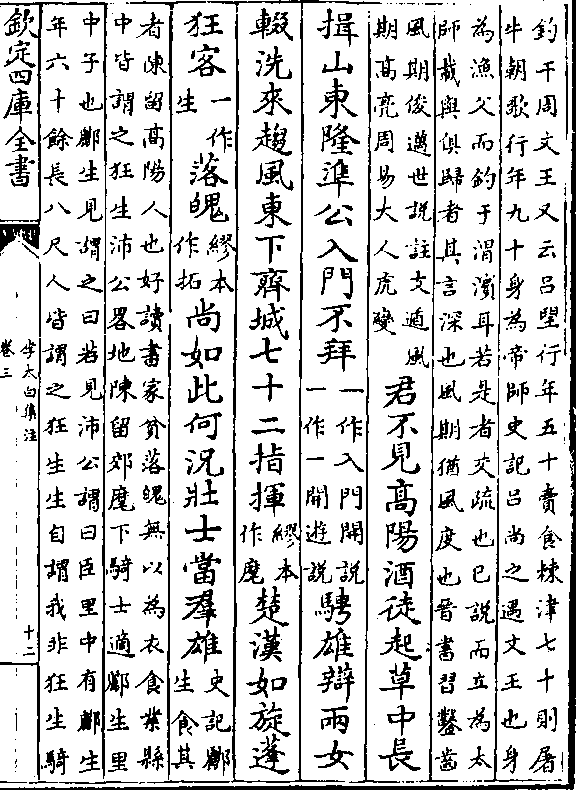 釣干周文王又云呂望行年五十賣食棘津七十則屠
牛朝歌行年九十身為帝師史記呂尚之遇文王也身
為漁父而釣于渭濱耳若是者交疏也已説而立為太
師載與俱歸者其言深也風期猶風度也晉書習鑿齒
風期俊邁世說註支遁風期高亮周易大人虎變君不見高陽酒徒起草中長
揖山東隆準公入門不拜一作入門開説一作一開遊説騁雄辯兩女
輟洗來趨風東下齊城七十二指揮繆本作麾楚漢如旋蓬
狂客一作生落魄繆本作拓尚如此何況壯士當羣雄史記酈生食其
者陳留高陽人也好讀書家貧落魄無以為衣食業縣
中皆謂之狂生沛公畧地陳留郊麾下騎士適酈生里
中子也酈生見謂之曰若見沛公謂曰臣里中有酈生
年六十餘長八尺人皆謂之狂生生自謂我非狂生騎
欽定四庫全書
李太白集注
卷三
十二